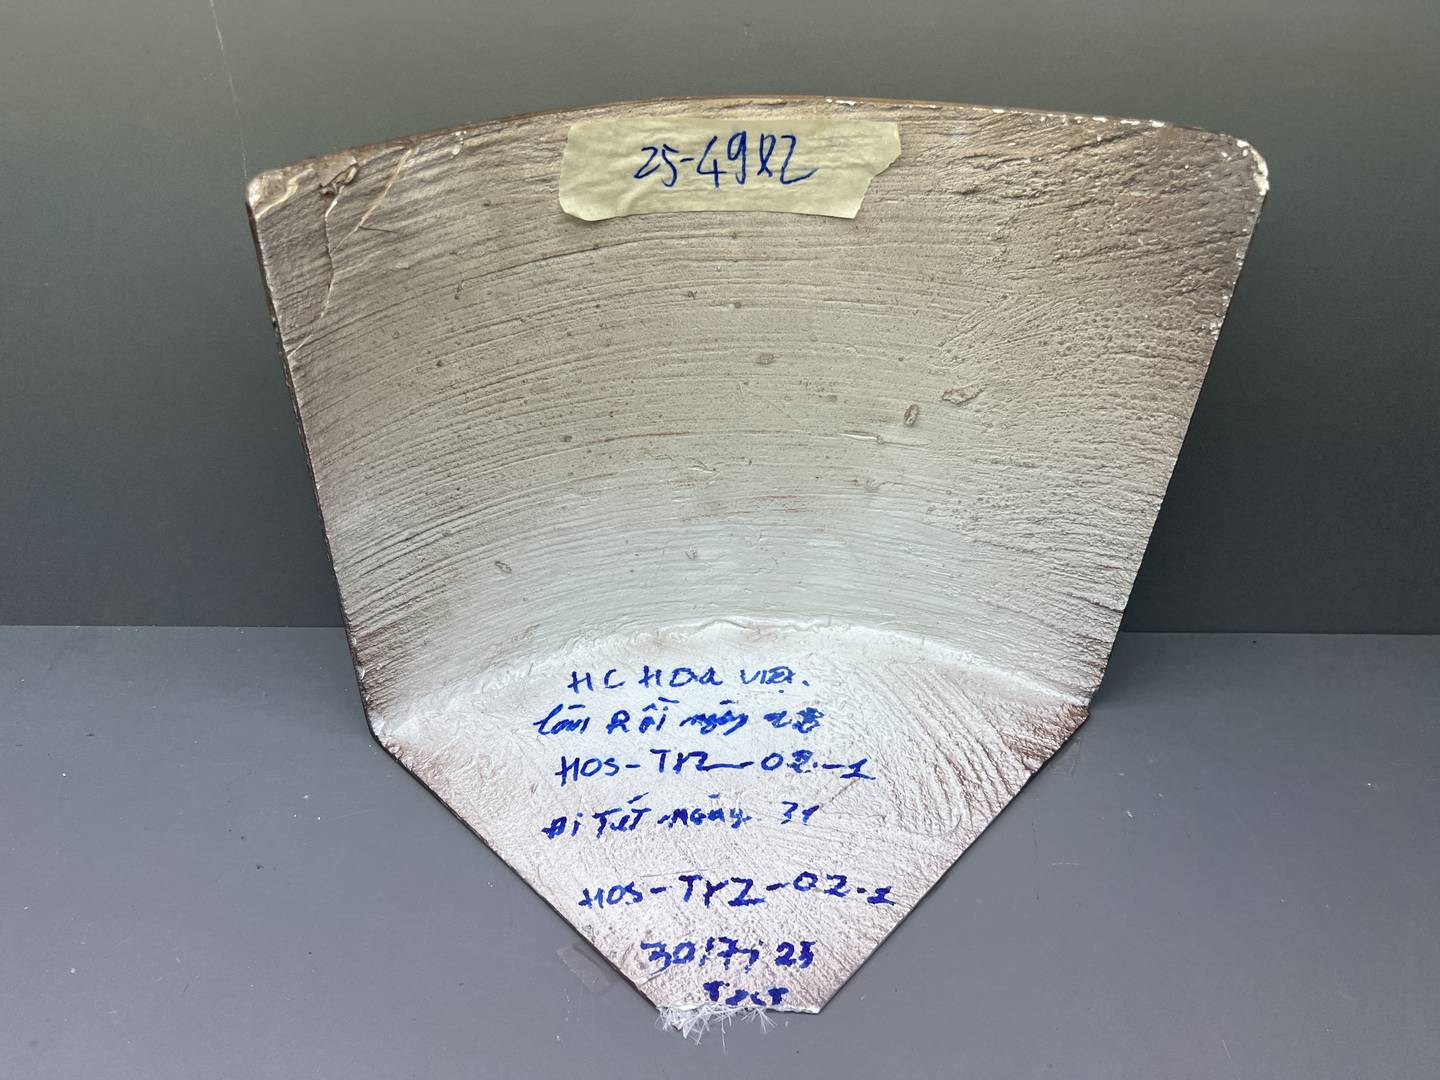 25-49RZ
HC HOA VIỆT.
làm Rồi ngày 28
HOS-TYZ-02-1
Đi TẾT ngày 31
HOS-TYZ-02-1
30/7/25
TEST